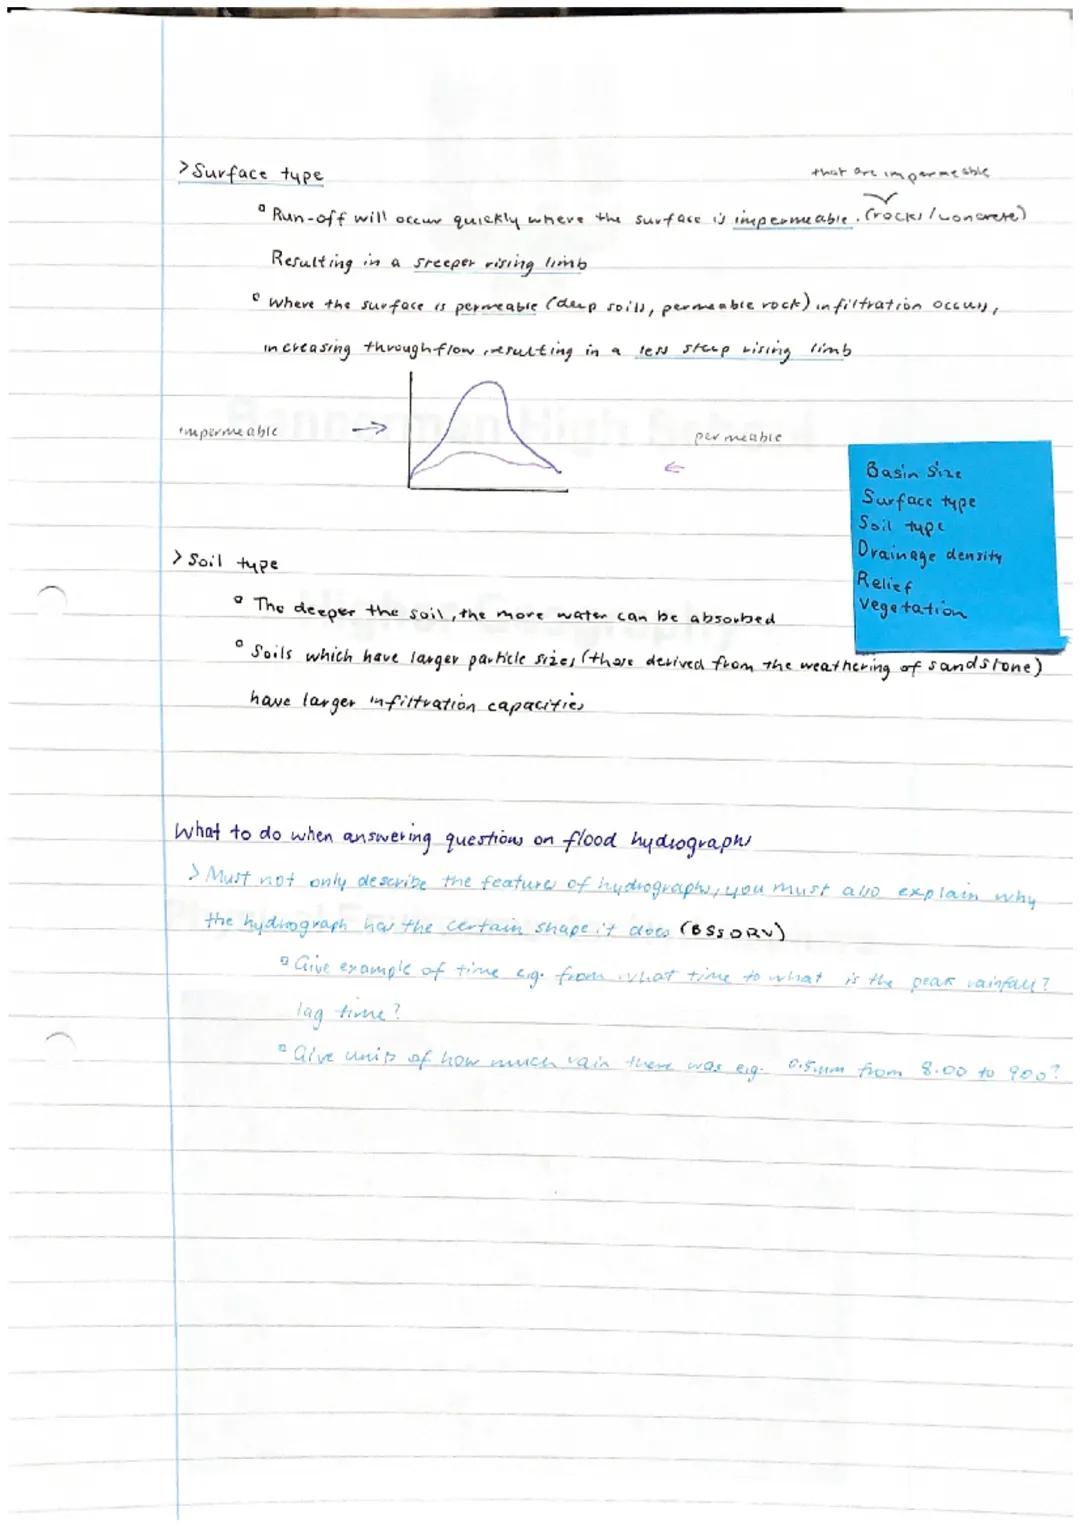 > Surface type
that are impermeable
▫ Run-off will occur quickly where the surface is impermeable. (rocks/concrete)
Resulting in a steeper rising limb
▫ Where the surface is permeable (deep soils, permeable rock) infiltration occurs,
increasing throughflow, resulting in a less steep rising limb
impermeable →
permeable ←
Basin Size
Surface type
Soil type
Drainage density
Relief
Vegetation
> Soil type
▫ The deeper the soil, the more water can be absorbed
▫ Soils which have larger particle sizes (those derived from the weathering of sandstone)
have larger infiltration capacities
What to do when answering questions on flood hydrographs
> Must not only describe the features of hydrographs, you must also explain why
the hydrograph has the certain shape it does (BSSDRV)
▫ Give example of time e.g. from what time to what is the peak rainfall?
lag time?
▫ Give units of how much rain there was e.g. 0.5mm from 8.00 to 900?
Bannerman High School
Higher Geography